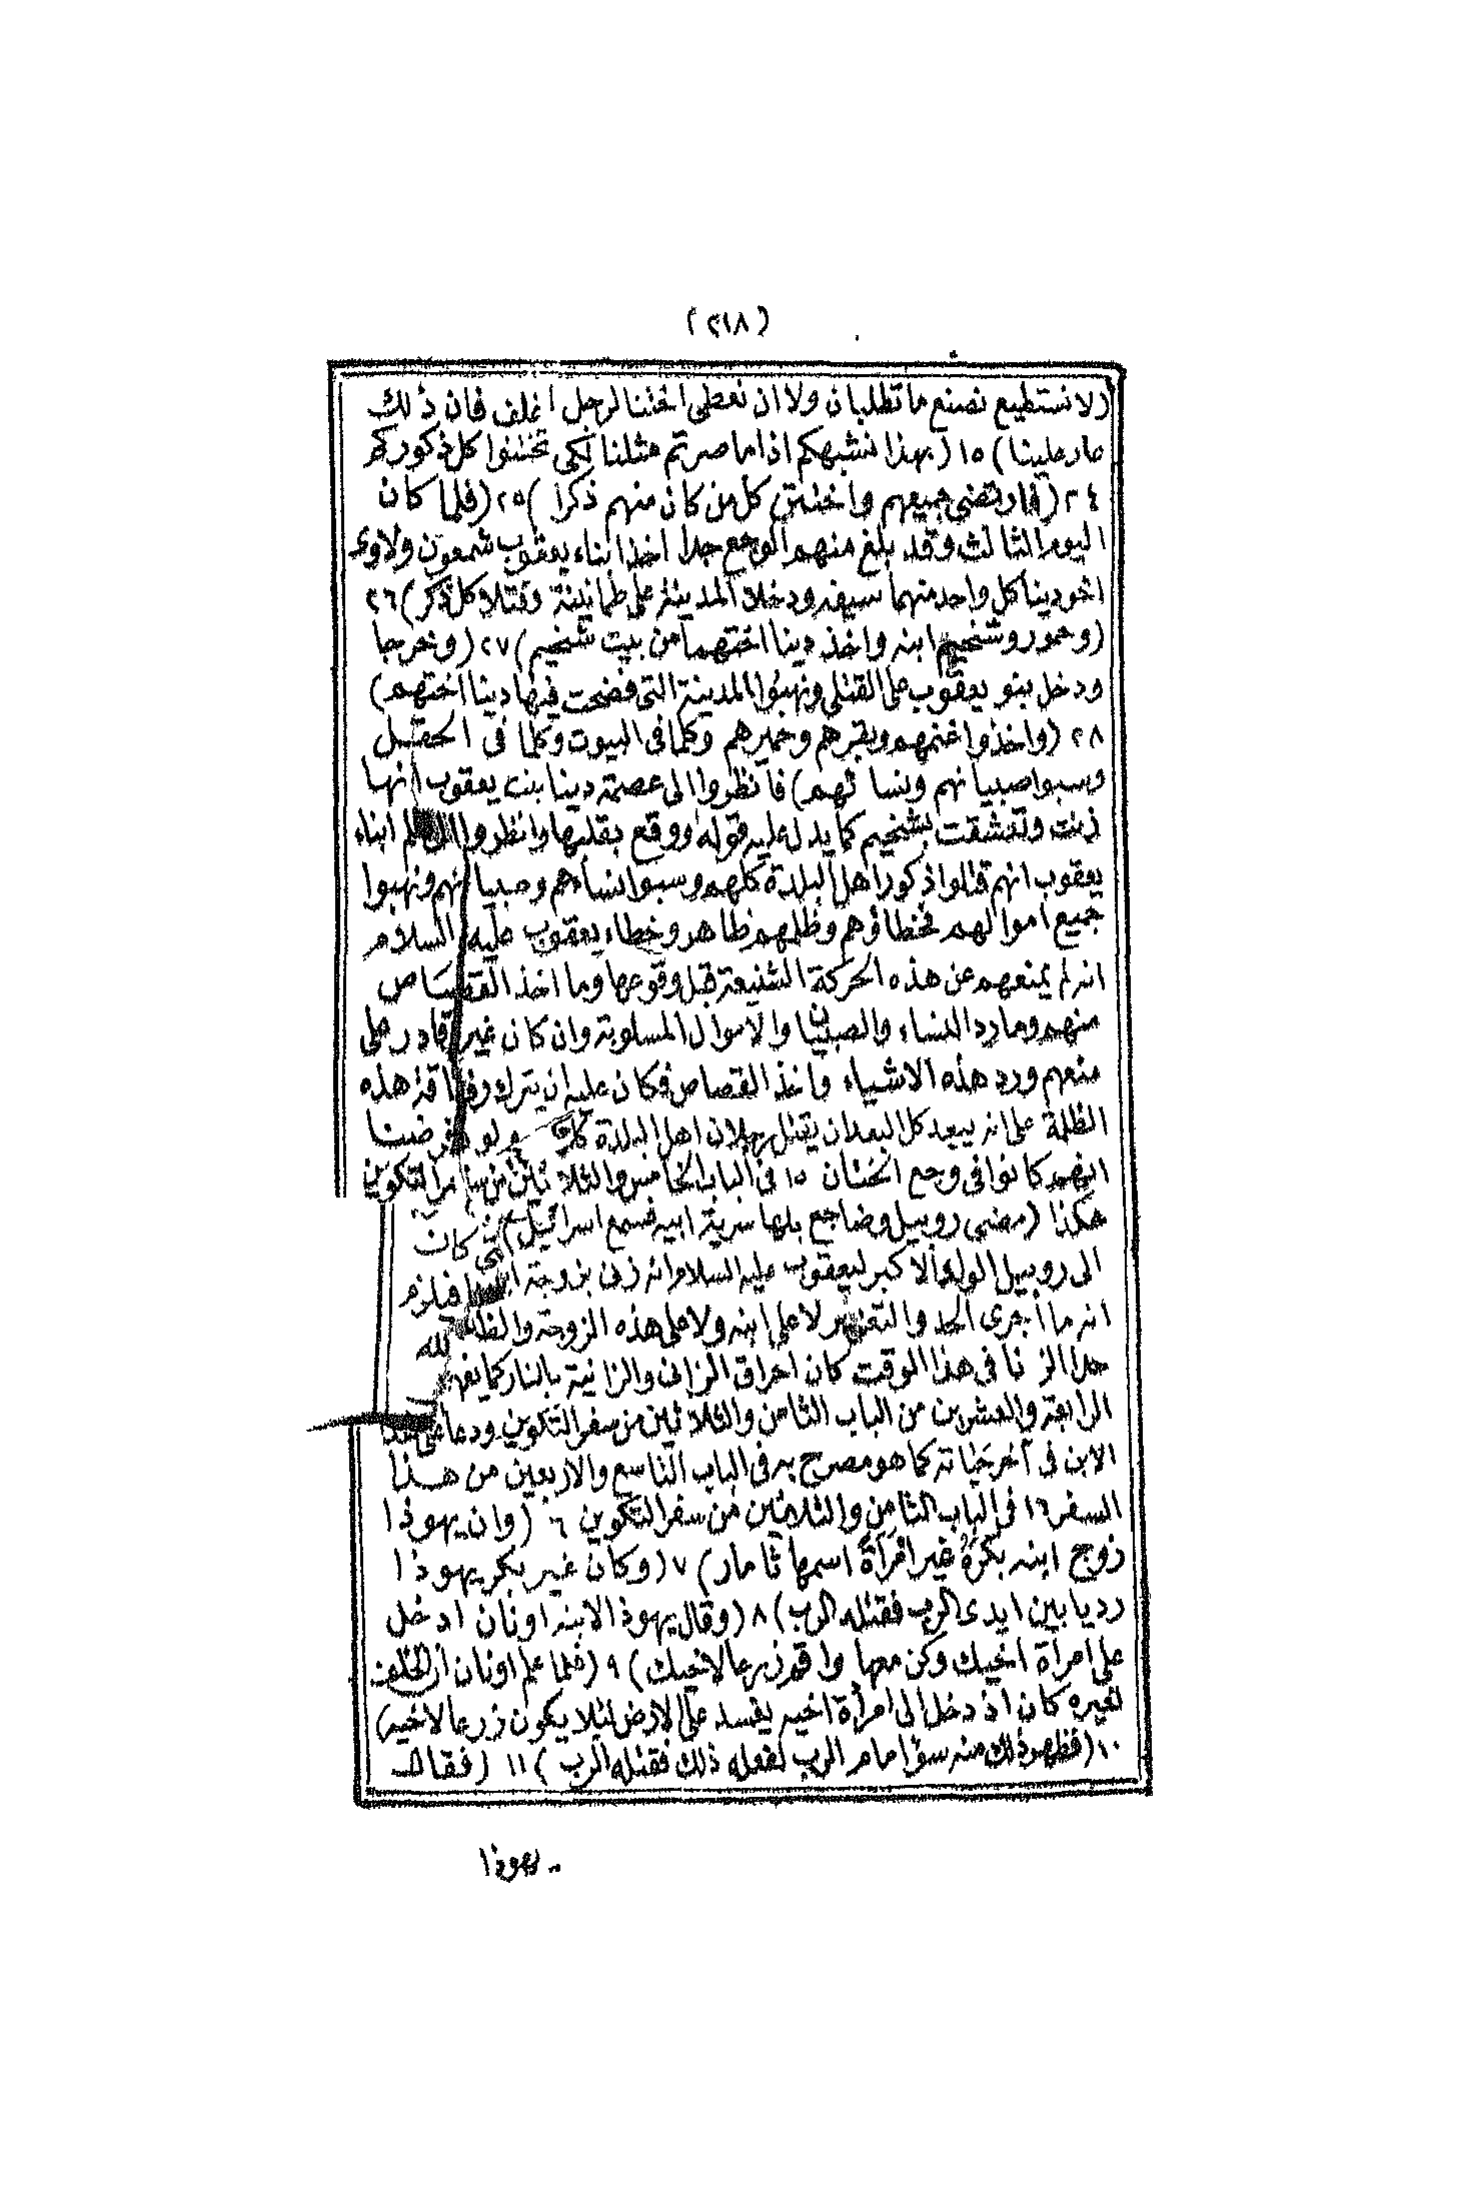 (٢١٨)
(لا نستطيع نصنع ما تطلبان ولا ان نعطى اختنا لرجل اغلف فان ذلك
عار علينا) ١٥ (بهذا نشبهكم اذا ما صرتم مثلنا لكى تختنوا كل ذكوركم
٢٤ (فارتضى جميعهم واختتن كل من كان منهم ذكرا) ٢٥ (فلما كان
اليوم الثالث وقد بلغ منهم الوجع جدا اخذ ابناء يعقوب شمعون ولاوى
اخو دينا كل واحد منهما سيفه ودخلا المدينة على طمانينة وقتلا كل ذكر) ٢٦
(وحمور وشخيم ابنه واخذ دينا اختهما من بيت شخيم) ٢٧ (وخرجا
ودخل بنو يعقوب على القتلى ونهبوا المدينة التى فضحت فيها دينا اختهم)
٢٨ (واخذوا غنمهم وبقرهم وحميرهم وكلما فى البيوت وكلما فى الحقل
وسبوا صبيانهم ونسائهم) فانظروا الى عصمة دينا بنت يعقوب انها
زنت وتعشقت بشخيم كما يدل عليه قوله ووقع بقلبها وانظروا الى ظلم ابناء
يعقوب انهم قتلوا ذكور اهل البلدة كلهم وسبوا نساءهم وصبيانهم ونهبوا
جميع اموالهم فخطاؤهم وظلمهم ظاهر وخطاء يعقوب عليه السلام
انه لم يمنعهم عن هذه الحركة الشنيعة قبل وقوعها وما اخذ القصاص
منهم وما رد النساء والصبيان والاموال المسلوبة وان كان غير قادر على
منعهم ورد هذه الاشياء واخذ القصاص فكان عليه ان يترك رفاقة هذه
الظلمة على انه يبعد كل البعد ان يقتل رجلان اهل البلدة ولو فرضنا
انهم كانوا فى وجع الختان ١٥ فى الباب الخامس والثلاثين من سفر التكوين
هكذا (مضى روبيل وضاجع بلها سرية ابيه فسمع اسرائيل) كان
الى روبيل الولد الاكبر ليعقوب عليه السلام انه زنى بزوجة فلزم
انه ما اجرى الحد والتعزير لا على ابنه ولا على هذه الزوجة والظا
حد الزنا فى هذا الوقت كان احراق الزانى والزانية بالنار كما يفهم
الرابعة والعشرين من الباب الثامن والثلاثين من سفر التكوين ودعا على هذا
الابن فى آخر حياته كما هو مصرح به فى الباب التاسع والاربعين من هذا
السفر ١٦ فى الباب الثامن والثلاثين من سفر التكوين ٦ (وان يهوذا
زوج ابنه بكره غير امرأة اسمها ثامار) ٧ (وكان غير بكر يهوذا
رديا بين ايدى الرب فقتله الرب) ٨ (وقال يهوذا لابنه اونان ادخل
على امرأة اخيك وكن معها واقم زرعا لاخيك) ٩ (فلما علم اونان ان الخلف
لغيره كان اذ دخل الى امرأة اخيه يفسد على الارض لئلا يكون زرعا لاخيه)
١٠ (فظهر ذلك منه سؤا امام الرب لفعله ذلك فقتله الرب) ١١ (فقال
يهوذا